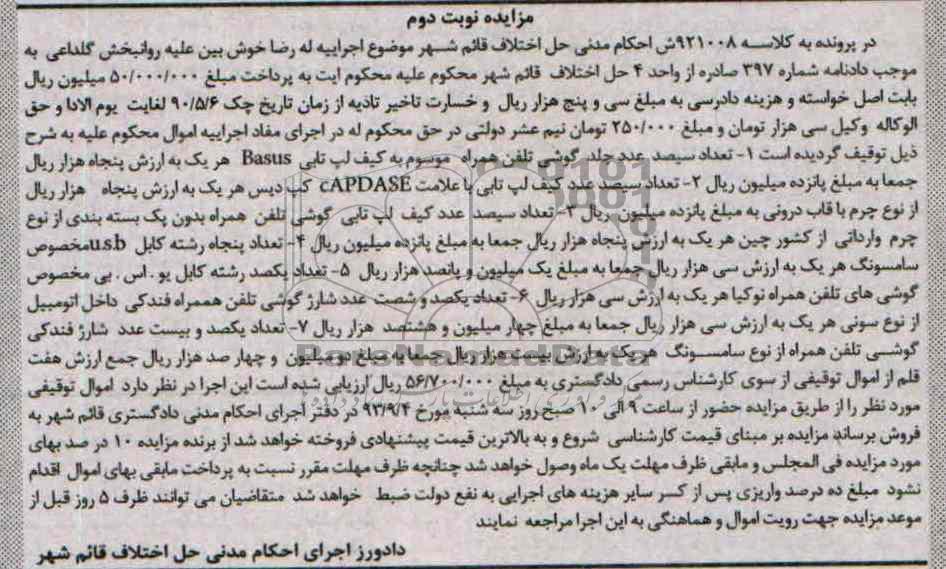 مزایده نوبت دوم
در پرونده به کلاسه ۹۲۱۰۰۸ش احکام مدنی حل اختلاف قائم شهر موضوع اجراییه له رضا خوش بین علیه روانبخش گلداعی به
موجب دادنامه شماره ۳۹۷ صادره از واحد ۴ حل اختلاف قائم شهر محکوم علیه محکوم ایت به پرداخت مبلغ ۵۰/۰۰۰/۰۰۰ میلیون ریال
بابت اصل خواسته و هزینه دادرسی به مبلغ سی و پنج هزار ریال و خسارت تاخیر تادیه از زمان تاریخ چک ۹۰/۵/۶ لغایت یوم الادا و حق
الوکاله وکیل سی هزار تومان و مبلغ ۲۵۰/۰۰۰ تومان نیم عشر دولتی در حق محکوم له در اجرای مفاد اجراییه اموال محکوم علیه به شرح
ذیل توقیف گردیده است ۱- تعداد سیصد عدد جلد گوشی تلفن همراه موسوم به کیف لپ تابی Basus هر یک به ارزش پنجاه هزار ریال
جمعا به مبلغ پانزده میلیون ریال ۲- تعداد سیصد عدد کیف لپ تابی با علامت cAPDASE کپ دیس هر یک به ارزش پنجاه هزار ریال
از نوع چرم با قاب درونی به مبلغ پانزده میلیون ریال ۳- تعداد سیصد عدد کیف لپ تابی گوشی تلفن همراه بدون پک بسته بندی از نوع
چرم وارداتی از کشور چین هر یک به ارزش پنجاه هزار ریال جمعا به مبلغ پانزده میلیون ریال ۴- تعداد پنجاه رشته کابل u.s.b مخصوص
سامسونگ هر یک به ارزش سی هزار ریال جمعا به مبلغ یک میلیون و پانصد هزار ریال ۵- تعداد یکصد رشته کابل یو . اس . بی مخصوص
گوشی های تلفن همراه نوکیا هر یک به ارزش سی هزار ریال ۶- تعداد یکصد و شصت عدد شارژ گوشی تلفن هممراه فندکی داخل اتومبیل
از نوع سونی هر یک به ارزش سی هزار ریال جمعا به مبلغ چهار میلیون و هشتصد هزار ریال ۷- تعداد یکصد و بیست عدد شارژ فندکی
گوشی تلفن همراه از نوع سامسونگ هر یک به ارزش بیست هزار ریال جمعا به مبلغ دو میلیون و چهار صد هزار ریال جمع ارزش هفت
قلم از اموال توقیفی از سوی کارشناس رسمی دادگستری به مبلغ ۵۶/۷۰۰/۰۰۰ ریال ارزیابی شده است این اجرا در نظر دارد اموال توقیفی
مورد نظر را از طریق مزایده حضور از ساعت ۹ الی ۱۰ صبح روز سه شنبه مورخ ۹۳/۹/۴ در دفتر اجرای احکام مدنی دادگستری قائم شهر به
فروش برساند مزایده بر مبنای قیمت کارشناسی شروع و به بالاترین قیمت پیشنهادی فروخته خواهد شد از برنده مزایده ۱۰ در صد بهای
مورد مزایده فی المجلس و مابقی ظرف مهلت یک ماه وصول خواهد شد چنانچه ظرف مهلت مقرر نسبت به پرداخت مابقی بهای اموال اقدام
نشود مبلغ ده درصد واریزی پس از کسر سایر هزینه های اجرایی به نفع دولت ضبط خواهد شد متقاضیان می توانند ظرف ۵ روز قبل از
موعد مزایده جهت رویت اموال و هماهنگی به این اجرا مراجعه نمایند
دادورز اجرای احکام مدنی حل اختلاف قائم شهر
ParsNamadData